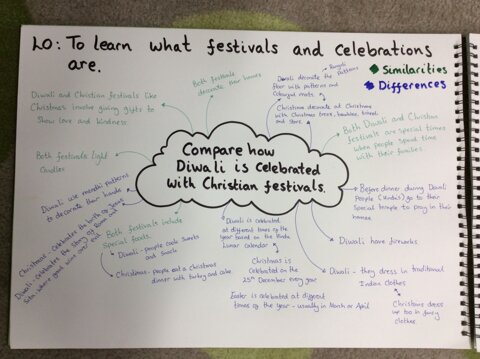 LO: To learn what festivals and celebrations
are.
Similarities
Differences
Diwali and Christian festivals like
Christmas involve giving gifts to
show love and kindness.
Both festivals
decorate their homes
Rangoli
patterns
Diwali decorate the
floor with patterns and
Colourful mats.
Christians decorate at Christmas
with Christmas trees, baubles, tinsel
and stars.
Both Diwali and Christian
festivals are special times
when people spend time
with their families.
Both festivals light
Candles
Compare how
Diwali is celebrated
with Christian festivals.
Diwali use mendhi patterns
to decorate their hands
Before dinner during Diwali
People (Hindus) go to their
Special temple to pray in their
homes.
Christmas celebrates the birth of Jesus
Diwali celebrates the story of Rama and
Sita - where good wins over evil.
Both festivals include
Special foods.
Diwali - people cook Sweets
and Snacks
Christmas - people eat a Christmas
dinner with turkey and cake.
Diwali is celebrated
at different times of the
year based on the Hindu
Lunar calendar
Christmas is
Celebrated on the
25th December every year
Easter is celebrated at different
times of the year - usually in March or April
Diwali have fireworks
Diwali - they dress in traditional
Indian clothes
Christians dress
up too in fancy
clothes.